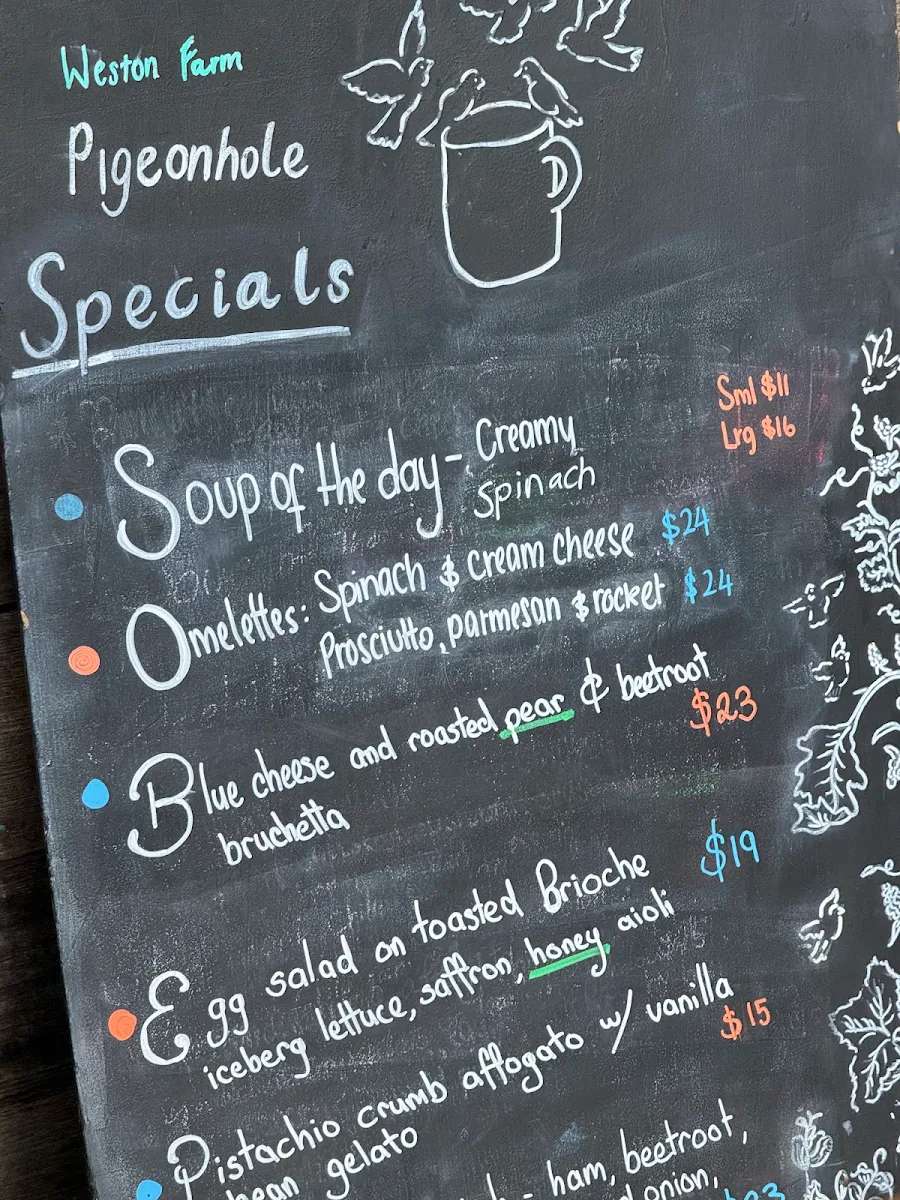 Weston Farm
Pigeonhole
D
Specials
Soup of the day - Creamy Sml $11
spinach Lrg $16
Omelettes: Spinach & cream cheese $24
Prosciutto, parmesan & rocket $24
Blue cheese and roasted pear & beetroot $23
bruchetta
Egg salad on toasted Brioche $19
iceberg lettuce, saffron, honey aioli
Pistachio crumb affogato w/ vanilla $15
bean gelato
- ham, beetroot,
onion,